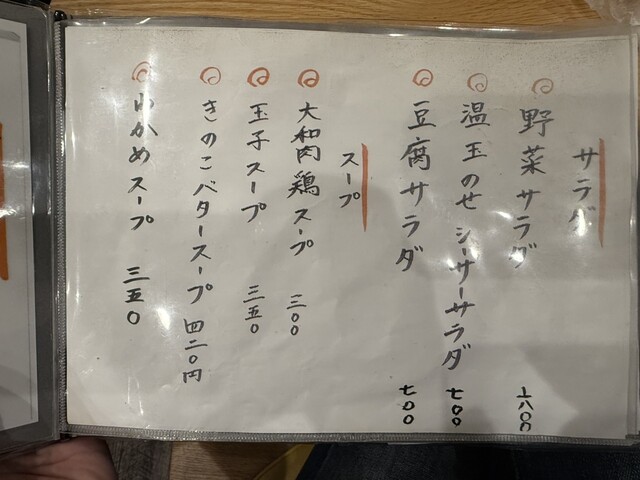 サラダ
野菜サラダ 六00
温玉のせシーサーサラダ 七00
豆腐サラダ 七00
スープ
大和肉鶏スープ 三00
玉子スープ 三五0
きのこバタースープ 四二0円
わかめスープ 三五0